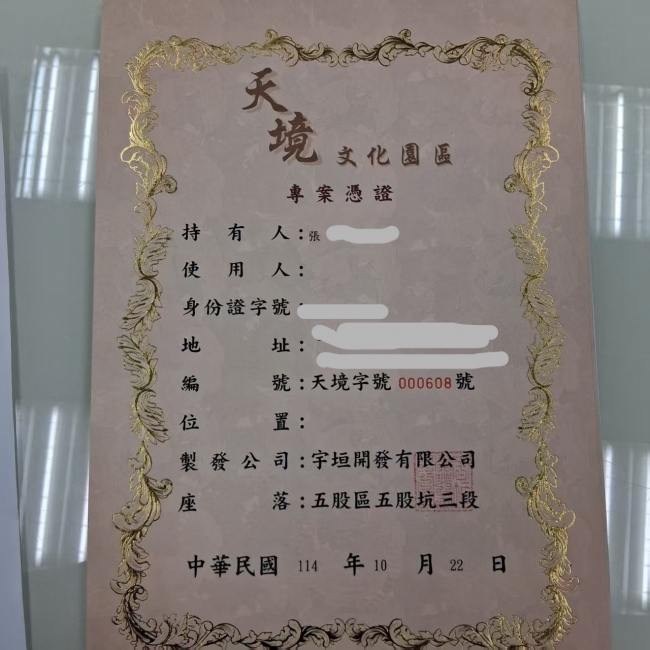 天境 文化園區
專案憑證
持有人：張
使用人：
身份證字號：
地址：
編號：天境字號 000608 號
位置：
製發公司：宇垣開發有限公司
座落：五股區五股坑三段
中華民國 114 年 10 月 22 日